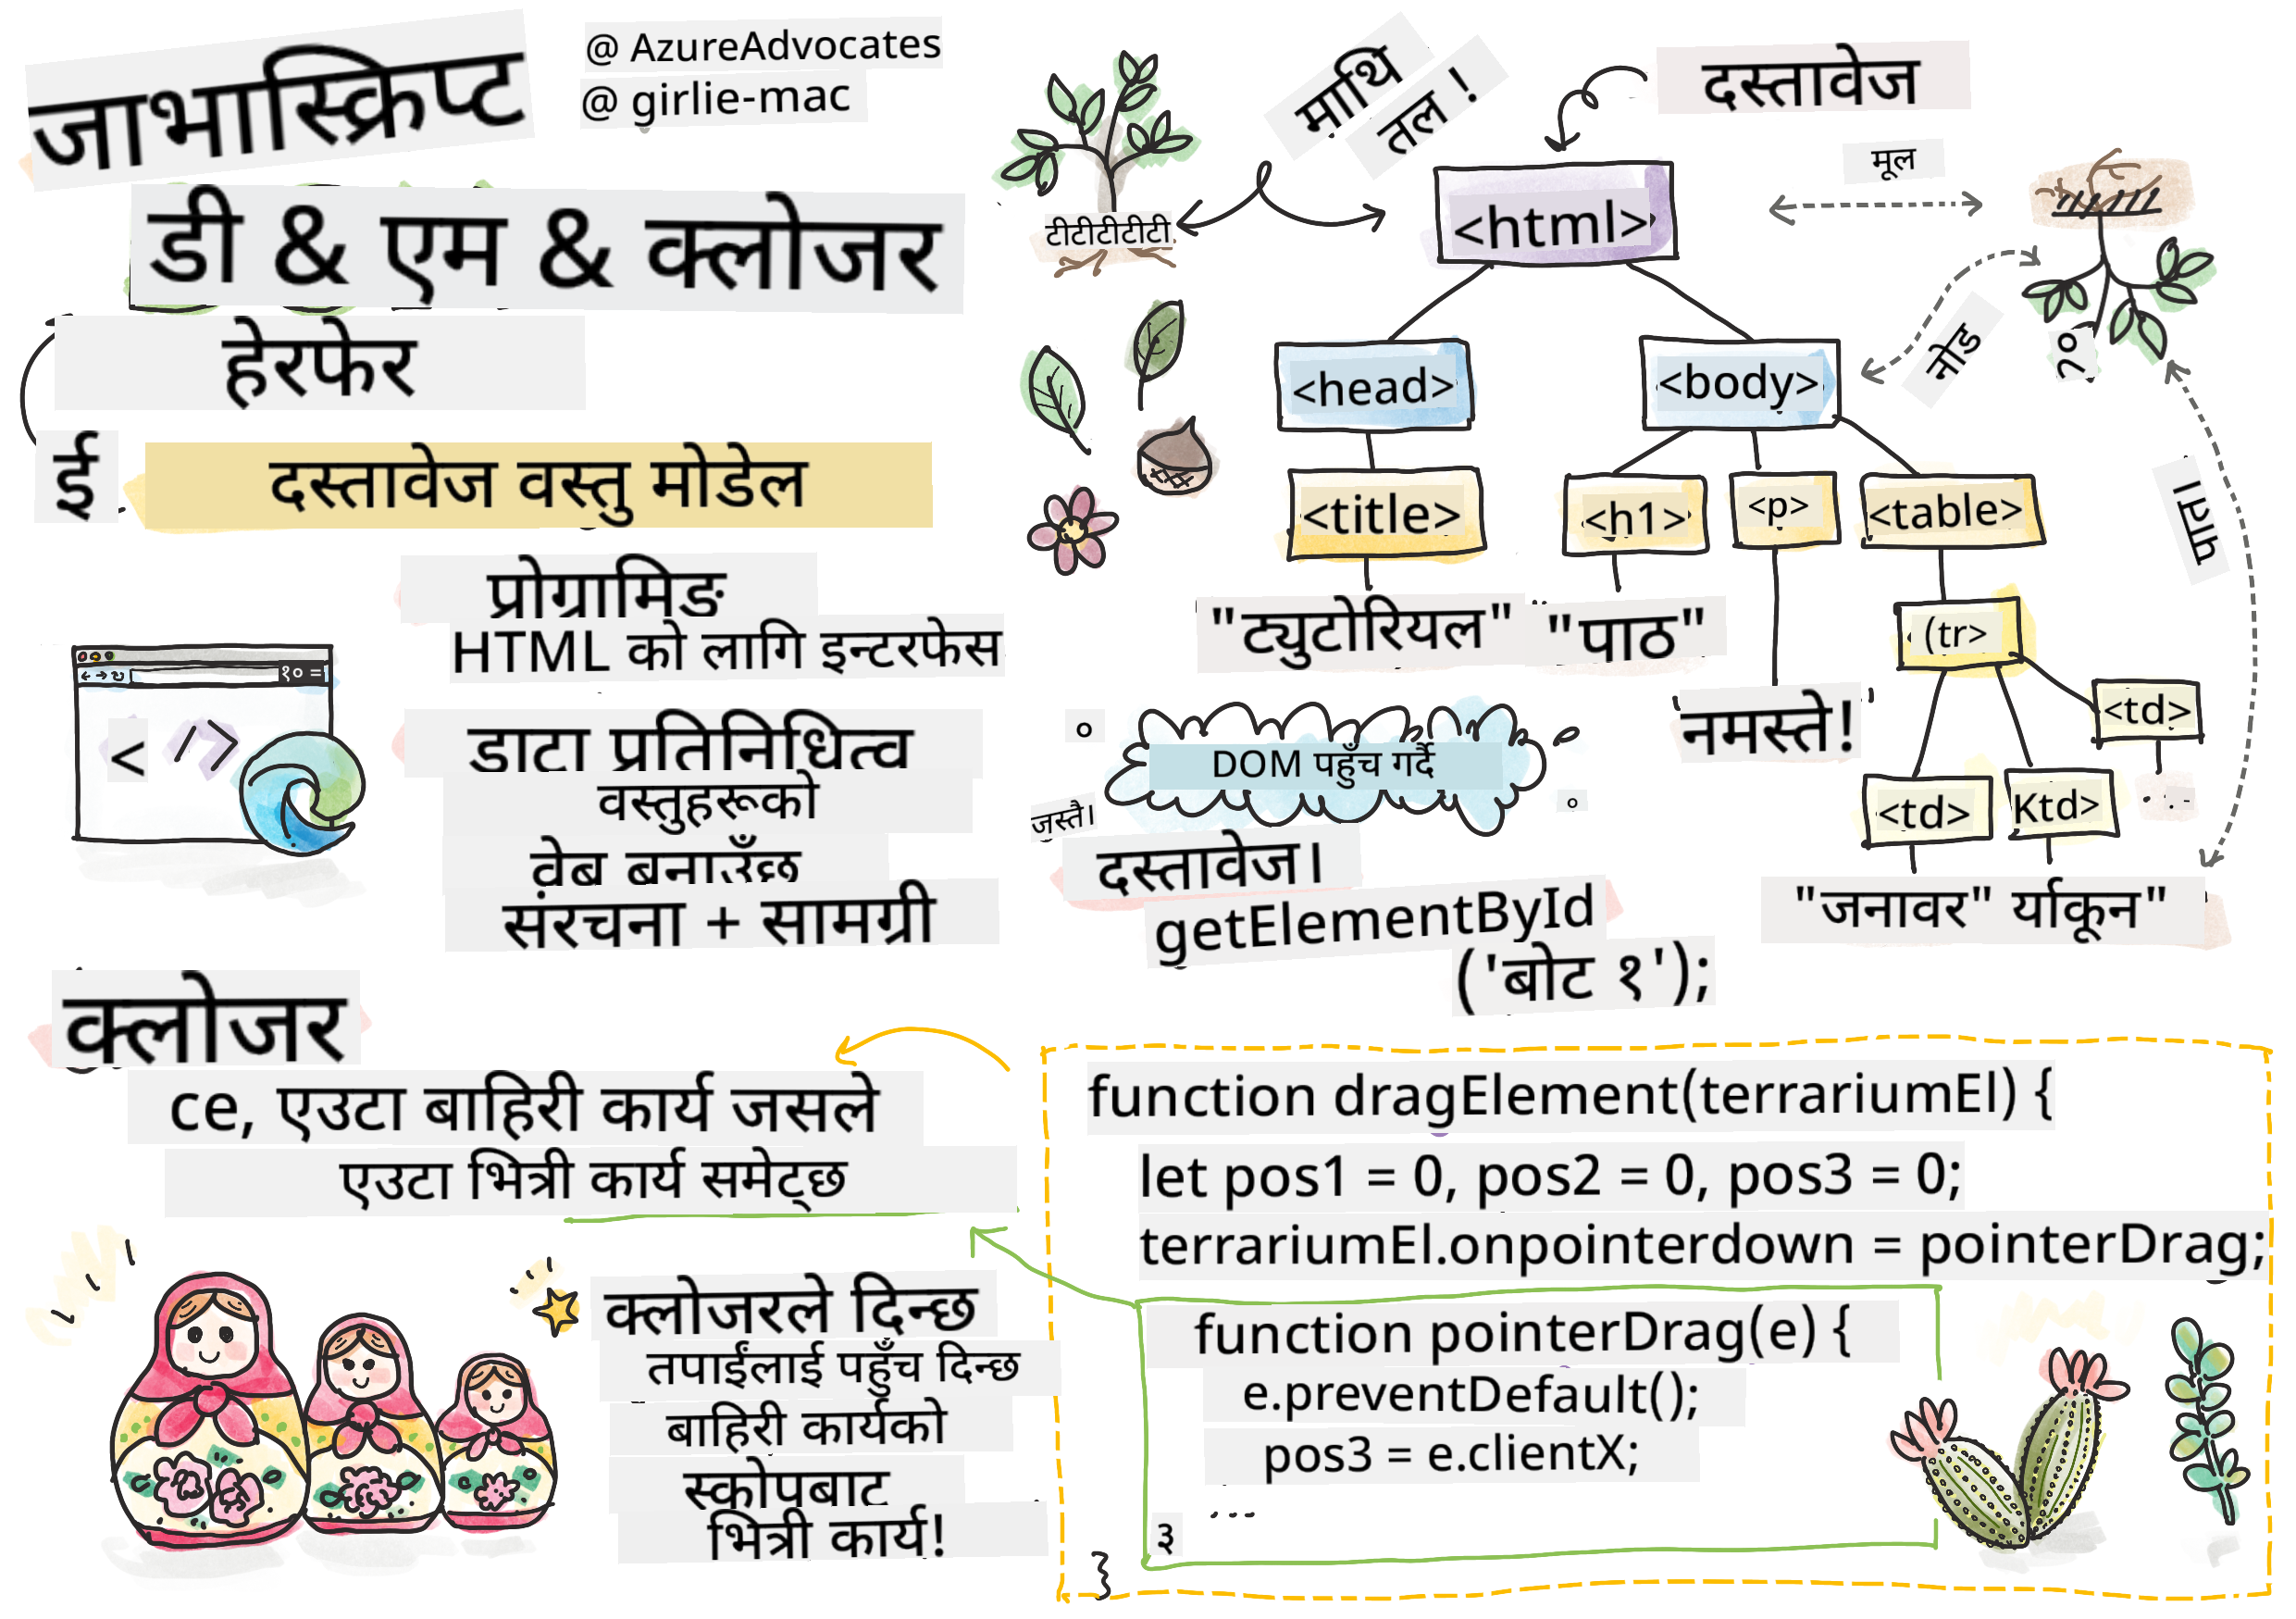 जाभास्क्रिप्ट
@ AzureAdvocates
@ girlie-mac
डी & एम & क्लोजर
हेरफेर
ई
दस्तावेज वस्तु मोडेल
प्रोग्रामिङ
HTML को लागि इन्टरफेस
१० =
< />
डाटा प्रतिनिधित्व
वस्तुहरूको
वेब बनाउँछ
संरचना + सामग्री
माथि
तल !
दस्तावेज
टीटीटीटीटी
<html>
मूल
<head>
<body>
नोड
१०
<title>
<h1>
<p>
<table>
पाता।
"ट्युटोरियल"
"पाठ"
(tr>
नमस्ते!
<td>
<td>
Ktd>
"जनावर" र्याकून"
DOM पहुँच गर्दै
जस्तै।
दस्तावेज।
getElementById
('बोट १');
क्लोजर
ce, एउटा बाहिरी कार्य जसले
एउटा भित्री कार्य समेट्छ
क्लोजरले दिन्छ
तपाईंलाई पहुँच दिन्छ
बाहिरी कार्यको
स्कोपबाट
भित्री कार्य!
function dragElement(terrariumEl) {
let pos1 = 0, pos2 = 0, pos3 = 0;
terrariumEl.onpointerdown = pointerDrag;
function pointerDrag(e) {
e.preventDefault();
pos3 = e.clientX;
...
३
}